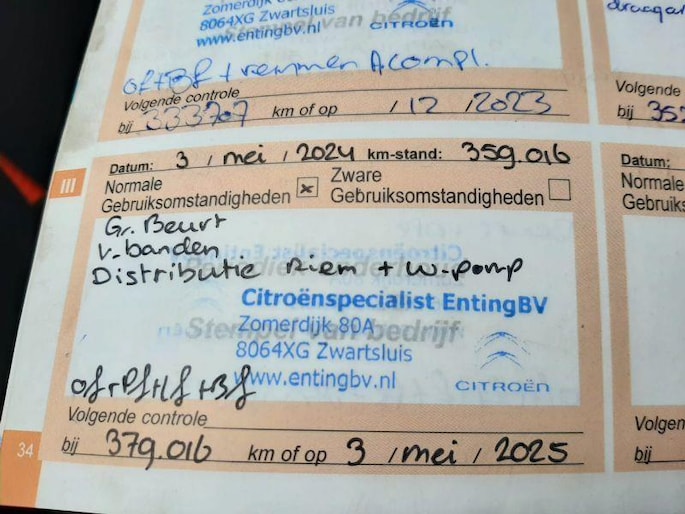 Zomerdijk
8064XG Zwartsluis
www.entingbv.nl
Stempel van bedrijf
CITROËN
of+Bf + remmen A compl.
Volgende controle
bij 333707 km of op / 12 / 2023
Volgende
bij 352
III
Datum: 3 / mei / 2024 km-stand: 359.016
Normale Gebruiksomstandigheden x
Zware Gebruiksomstandigheden
Gr. Beurt
v. banden
Distributie Riem + w-pomp
Citroënspecialist EntingBV
Zomerdijk 80A
Stempel van bedrijf
8064XG Zwartsluis
www.entingbv.nl
CITROËN
of+Pf+If+Bf
Volgende controle
bij 379.016 km of op 3 / mei / 2025
34
Datum:
Normale
Gebruiks
Volgen
bij